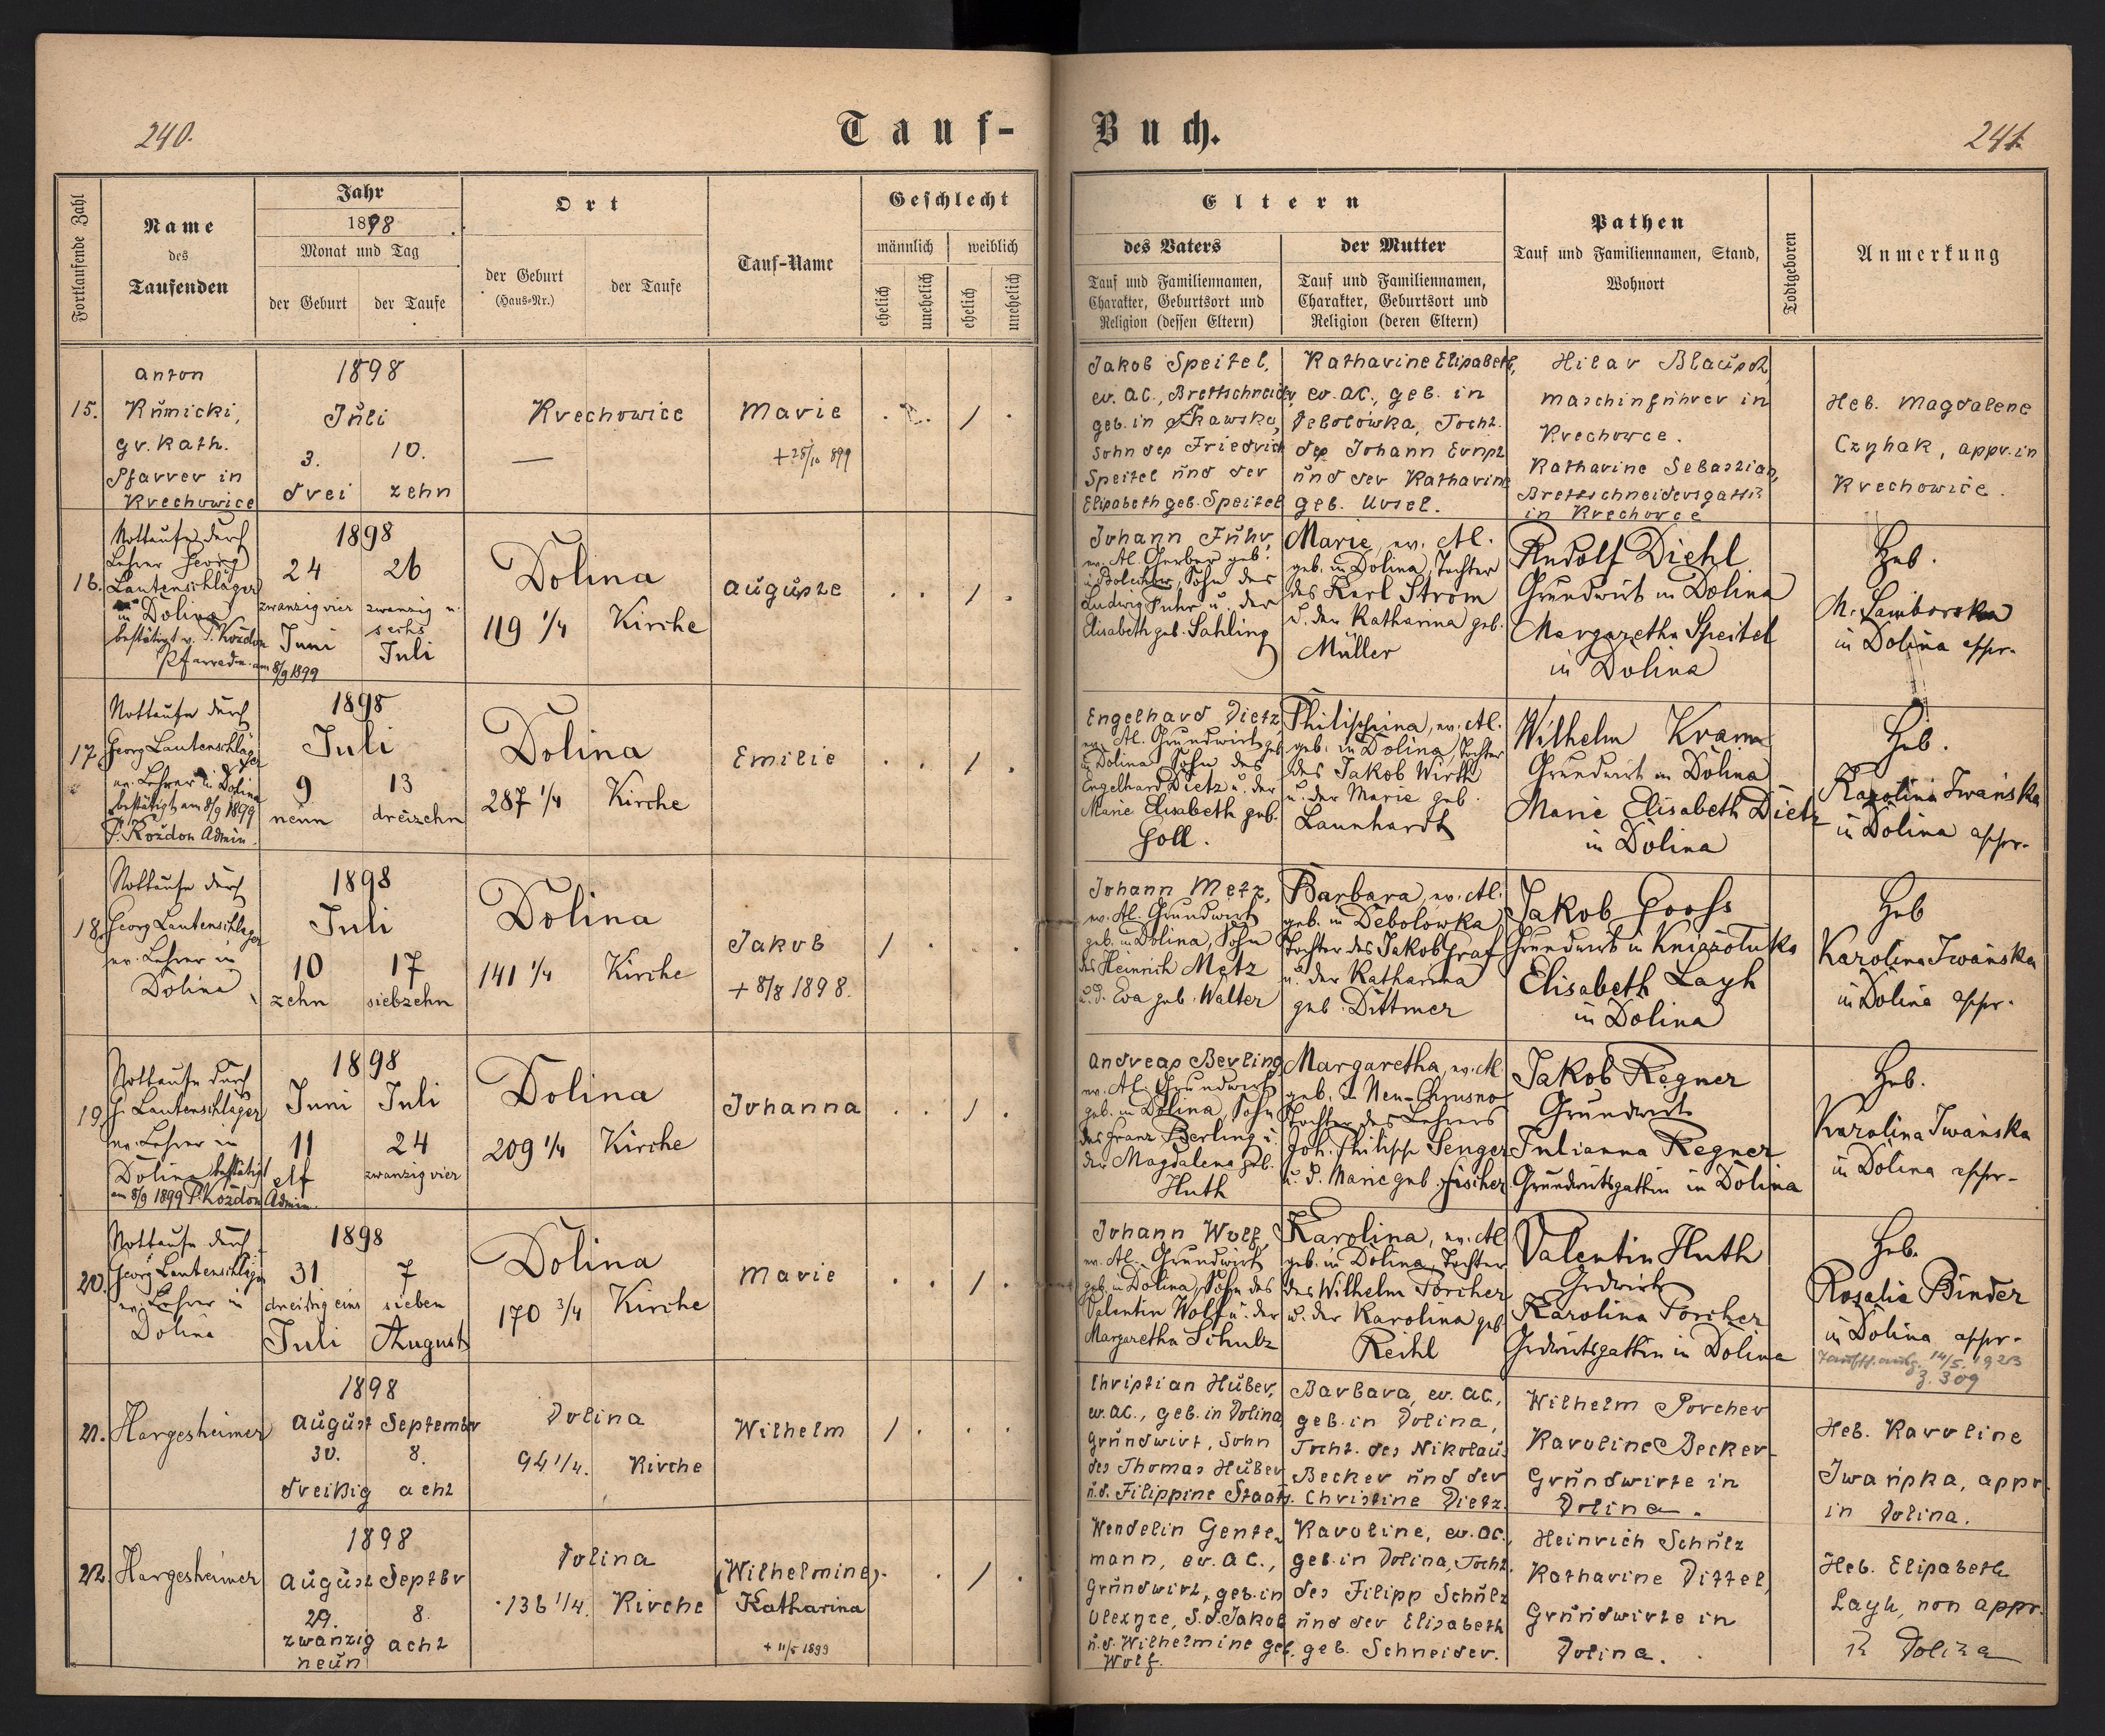 240.
Tauf-
Buch.
241.
Fortlaufende Zahl
Name
des
Taufenden
Jahr
1898
Monat und Tag
der Geburt
der Taufe
Ort
der Geburt
(Haus-Nr.)
der Taufe
Tauf-Name
Geschlecht
männlich
weiblich
ehelich
unehelich
ehelich
unehelich
Eltern
des Vaters
Tauf und Familiennamen,
Charakter, Geburtsort und
Religion (dessen Eltern)
der Mutter
Tauf und Familiennamen,
Charakter, Geburtsort und
Religion (deren Eltern)
Pathen
Tauf und Familiennamen, Stand,
Wohnort
Todtgeboren
Anmerkung
15.
Anton
Kumicki,
gr. kath.
Pfarrer in
Krechowice
1898
Juli
3. 10.
drei zehn
Krechowice
—
Marie
+ 25/10 899
. . / .
Jakob Speitel,
ev. AC., Brettschneider,
geb. in
Sohn des Friedrich
Speitel und der
Elisabeth geb. Speitel
Katharine Elisabeth,
ev. AC., geb. in
Debolówka, Tocht.
des Johann Ernst
und der Katharine
geb. Ursel.
Hilar
Maschinführer in
Krechowce.
Katharine Sebastian,
Brettschneidersgattin
in Krechowce
Heb. Magdalene
Czyhak, appr. in
Krechowice.
16.
Nottaufe durch
Lehrer Georg
Lautenschläger
in Dolina
bestätigt v. P. Koźdon
Pfarradm. am 8/9 1899
1898
24 26
zwanzig vier zwanzig u.
sechs
Juni Juli
Dolina
119 1/4 Kirche
Auguste
. . / .
Johann Fuhr,
ev. Al. Gerber geb.
in Bolechow, Sohn des
Ludwig Fuhr u. der
Elisabeth geb. Sahling
Marie, ev. Al.
geb. in Dolina, Tochter
des Karl Strom
u. der Katharina geb.
Müller
Rudolf Diehl
Grundwirt in Dolina
Margaretha Speitel
in Dolina
Heb.
M. Samborska
in Dolina appr.
17.
Nottaufe durch
Georg Lautenschläger
ev. Lehrer in Dolina
bestätigt am 8/9 1899
P. Koźdon Admin.
1898
Juli
9 13
neun dreizehn
Dolina
287 1/4 Kirche
Emilie
. . / .
Engelhard Dietz,
ev. Al. Grundwirt geb.
in Dolina Sohn des
Engelhard Dietz u. der
Marie Elisabeth geb.
Goll.
Philippina, ev. Al.
geb. in Dolina, Tochter
des Jakob Wirth
u. der Marie geb.
Launhardt
Wilhelm Kramm
Grundwirt in Dolina
Marie Elisabeth Dietz
in Dolina
Heb.
Karolina Iwańska
in Dolina appr.
18.
Nottaufe durch
Georg Lautenschläger
ev. Lehrer in
Dolina
1898
Juli
10 17
zehn siebzehn
Dolina
141 1/4 Kirche
Jakob
+ 8/8 1898.
/ . . .
Johann Metz,
ev. Al. Grundwirt
geb. in Dolina, Sohn
des Heinrich Metz
u. d. Eva geb. Walter
Barbara, ev. Al.
geb. in Debolowka
Tochter des Jakob Graf
u. der Katharina
geb. Dittmer
Jakob Gooss
Grundwirt in Kniaźołuka
Elisabeth Layh
in Dolina
Heb
Karolina Iwańska
in Dolina appr.
19.
Nottaufe durch
G. Lautenschläger
ev. Lehrer in
Dolina bestätigt
am 8/9 1899 P. Koźdon Admin.
1898
Juni Juli
11 24
elf zwanzig vier
Dolina
209 1/4 Kirche
Johanna
. . / .
Andreas Berling
ev. Al. Grundwirt
geb. in Dolina, Sohn
des Franz Berling u.
der Magdalena geb.
Huth
Margaretha, ev. Al.
geb. in Neu-Chrusno
Tochter des Lehrers
Joh. Philipp Senger
u. d. Marie geb. Fischer
Jakob Regner
Grundwirt
Julianna Regner
Grundwirtsgattin in Dolina
Heb.
Karolina Iwańska
in Dolina appr.
20.
Nottaufe durch
Georg Lautenschläger
ev. Lehrer in
Dolina
1898
31 7
dreißig eins sieben
Juli August
Dolina
170 3/4 Kirche
Marie
. . / .
Johann Wolf,
ev. Al. Grundwirt
geb. in Dolina, Sohn des
Valentin Wolf u. der
Margaretha Schulz
Karolina, ev. Al
geb. in Dolina, Tochter
des Wilhelm Porcher
u. der Karolina geb
Reihl
Valentin Huth
Grdwirt
Karolina Porcher
Grdwirtsgattin in Dolina
Heb.
Rosalia Binder
in Dolina appr.
Taufsch. ausg. 14/5. 1923
Z. 309
21.
Hargesheimer
1898
August September
30. 8.
dreißig acht
Dolina
94 1/4. Kirche
Wilhelm
/ . . .
Christian Huber,
ev. AC., geb. in Dolina,
Grundwirt, Sohn
des Thomas Huber
u. d. Filippine Staatz.
Barbara, ev. AC.,
geb. in Dolina,
Tocht. des Nikolaus
Becker und der
Christine Dietz.
Wilhelm Porcher
Karoline Becker
Grundwirte in
Dolina.
Heb. Karoline
Iwańska, appr.
in Dolina.
22.
Hargesheimer
1898
August Septbr
29. 8.
zwanzig acht
neun
Dolina
136 1/4. Kirche
(Wilhelmine)
Katharina
+ 11/5 1899
. . / .
Wendelin Gente-
mann, ev. AC.,
Grundwirt, geb. in
Olexyce, S. d. Jakob
u. d. Wilhelmine geb.
Wolf.
Karoline, ev. AC.
geb. in Dolina, Tocht.
des Filipp Schulz
und der Elisabeth
geb. Schneider.
Heinrich Schulz
Katharine Dittel,
Grundwirte in
Dolina.
Heb. Elisabeth
Layh, non appr.
in Dolina